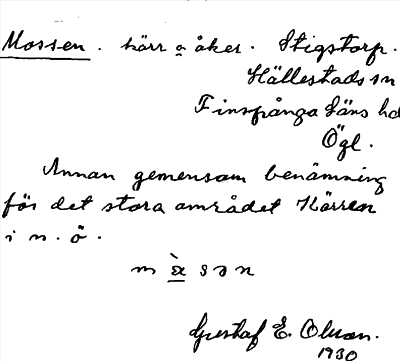 Mossen. kärr o åker. Stigstorp.
Hällestads sn
Finspånga läns hd
Ögl.
Annan gemensam benämning
för det stora området Kärren
i n. ö.
Gustaf E. Olsson.
1930